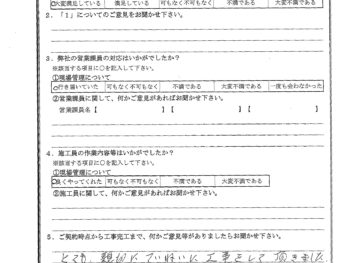 ○大変満足している 満足している 可もなく不可もなく 不満である 大変不満である
2．「1」についてのご意見をお聞かせ下さい。
3．弊社の営業課員の対応はいかがでしたか？
※該当する項目に○を記入して下さい。
①現場管理について
○行き届いていた 可もなく不可もなく 不満である 大変不満である 一度も会わなかった
②営業課員に関して、何かご意見があればお聞かせ下さい。
営業課員名【 】【 】【
4．施工員の作業内容等はいかがでしたか？
※該当する項目に○を記入して下さい。
①現場管理について
○良くやってくれた 可もなく不可もなく 不満である 大変不満である
②施工員に関して、何かご意見があればお聞かせ下さい。
5．ご契約時点から工事完工まで、何かご意見等がありましたらお聞かせ下さい。
とても、親切に、ていねいに工事をして頂きました